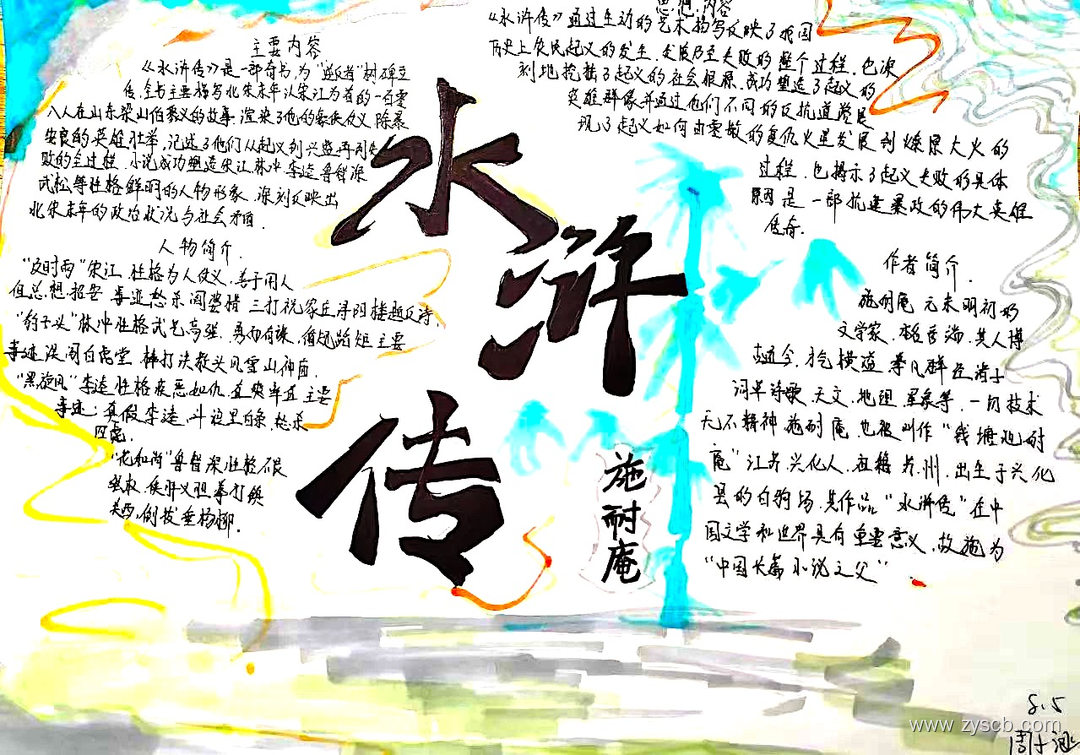 主要内容
《水浒传》是一部奇书,为"逆者"树碑立
传,全书主要描写北宋末年以宋江为首的一百零
八人在山东梁山伯聚义的故事,渲染了他的豪侠仗义 除暴
安良的英雄壮举,记述了他们从起义到兴盛再到失
败的全过程,小说成功塑造宋江林冲 李逵 鲁智深
武松等性格鲜明的人物形象,深刻反映出
北宋末年的政治状况与社会矛盾.
人物简介.
"及时雨"宋江 性格为人仗义,善于用人
但总想招安 事迹 怒杀阎婆惜 三打祝家庄 浔阳楼题反诗
"豹子头"林冲性格武艺高强,勇而有谋,循规蹈矩 主要
事迹 误闯白虎堂 棒打洪教头风雪山神庙.
"黑旋风"李逵 性格疾恶如仇 直爽率直 主要
事迹:真假李逵,斗浪里白条 怒杀
四虎.
"花和尚"鲁智深性格不畏
强权,侠肝义胆 拳打镇
关西,倒拔垂杨柳.
水浒传
施耐庵
思想内容
《水浒传》通过生动的艺术描写反映了我国
历史上农民起义的发生,发展乃至失败的整个过程,也深
刻地挖掘了起义的社会根源,成功塑造了起义的
英雄群像并通过他们不同的反抗道路展
现了起义如何由零散的复仇火星发展到燎原大火的
过程,也揭示了起义失败的具体
原因是一部抗击暴政的伟大英雄
传奇.
作者简介.
施耐庵 元末明初的
文学家,其人博
古通今,才气横溢 举凡群经诸子
词章诗歌,天文,地理,星象等,一切技术
无不精神 施耐庵,也被叫作"钱塘施耐
庵"江苏,兴化人,祖籍苏州,出生于兴化
县的白驹场,其作品"水浒传"在中
国文学和世界具有重要意义,故施为
"中国长篇小说之父"
8.5
www.zyscb.com